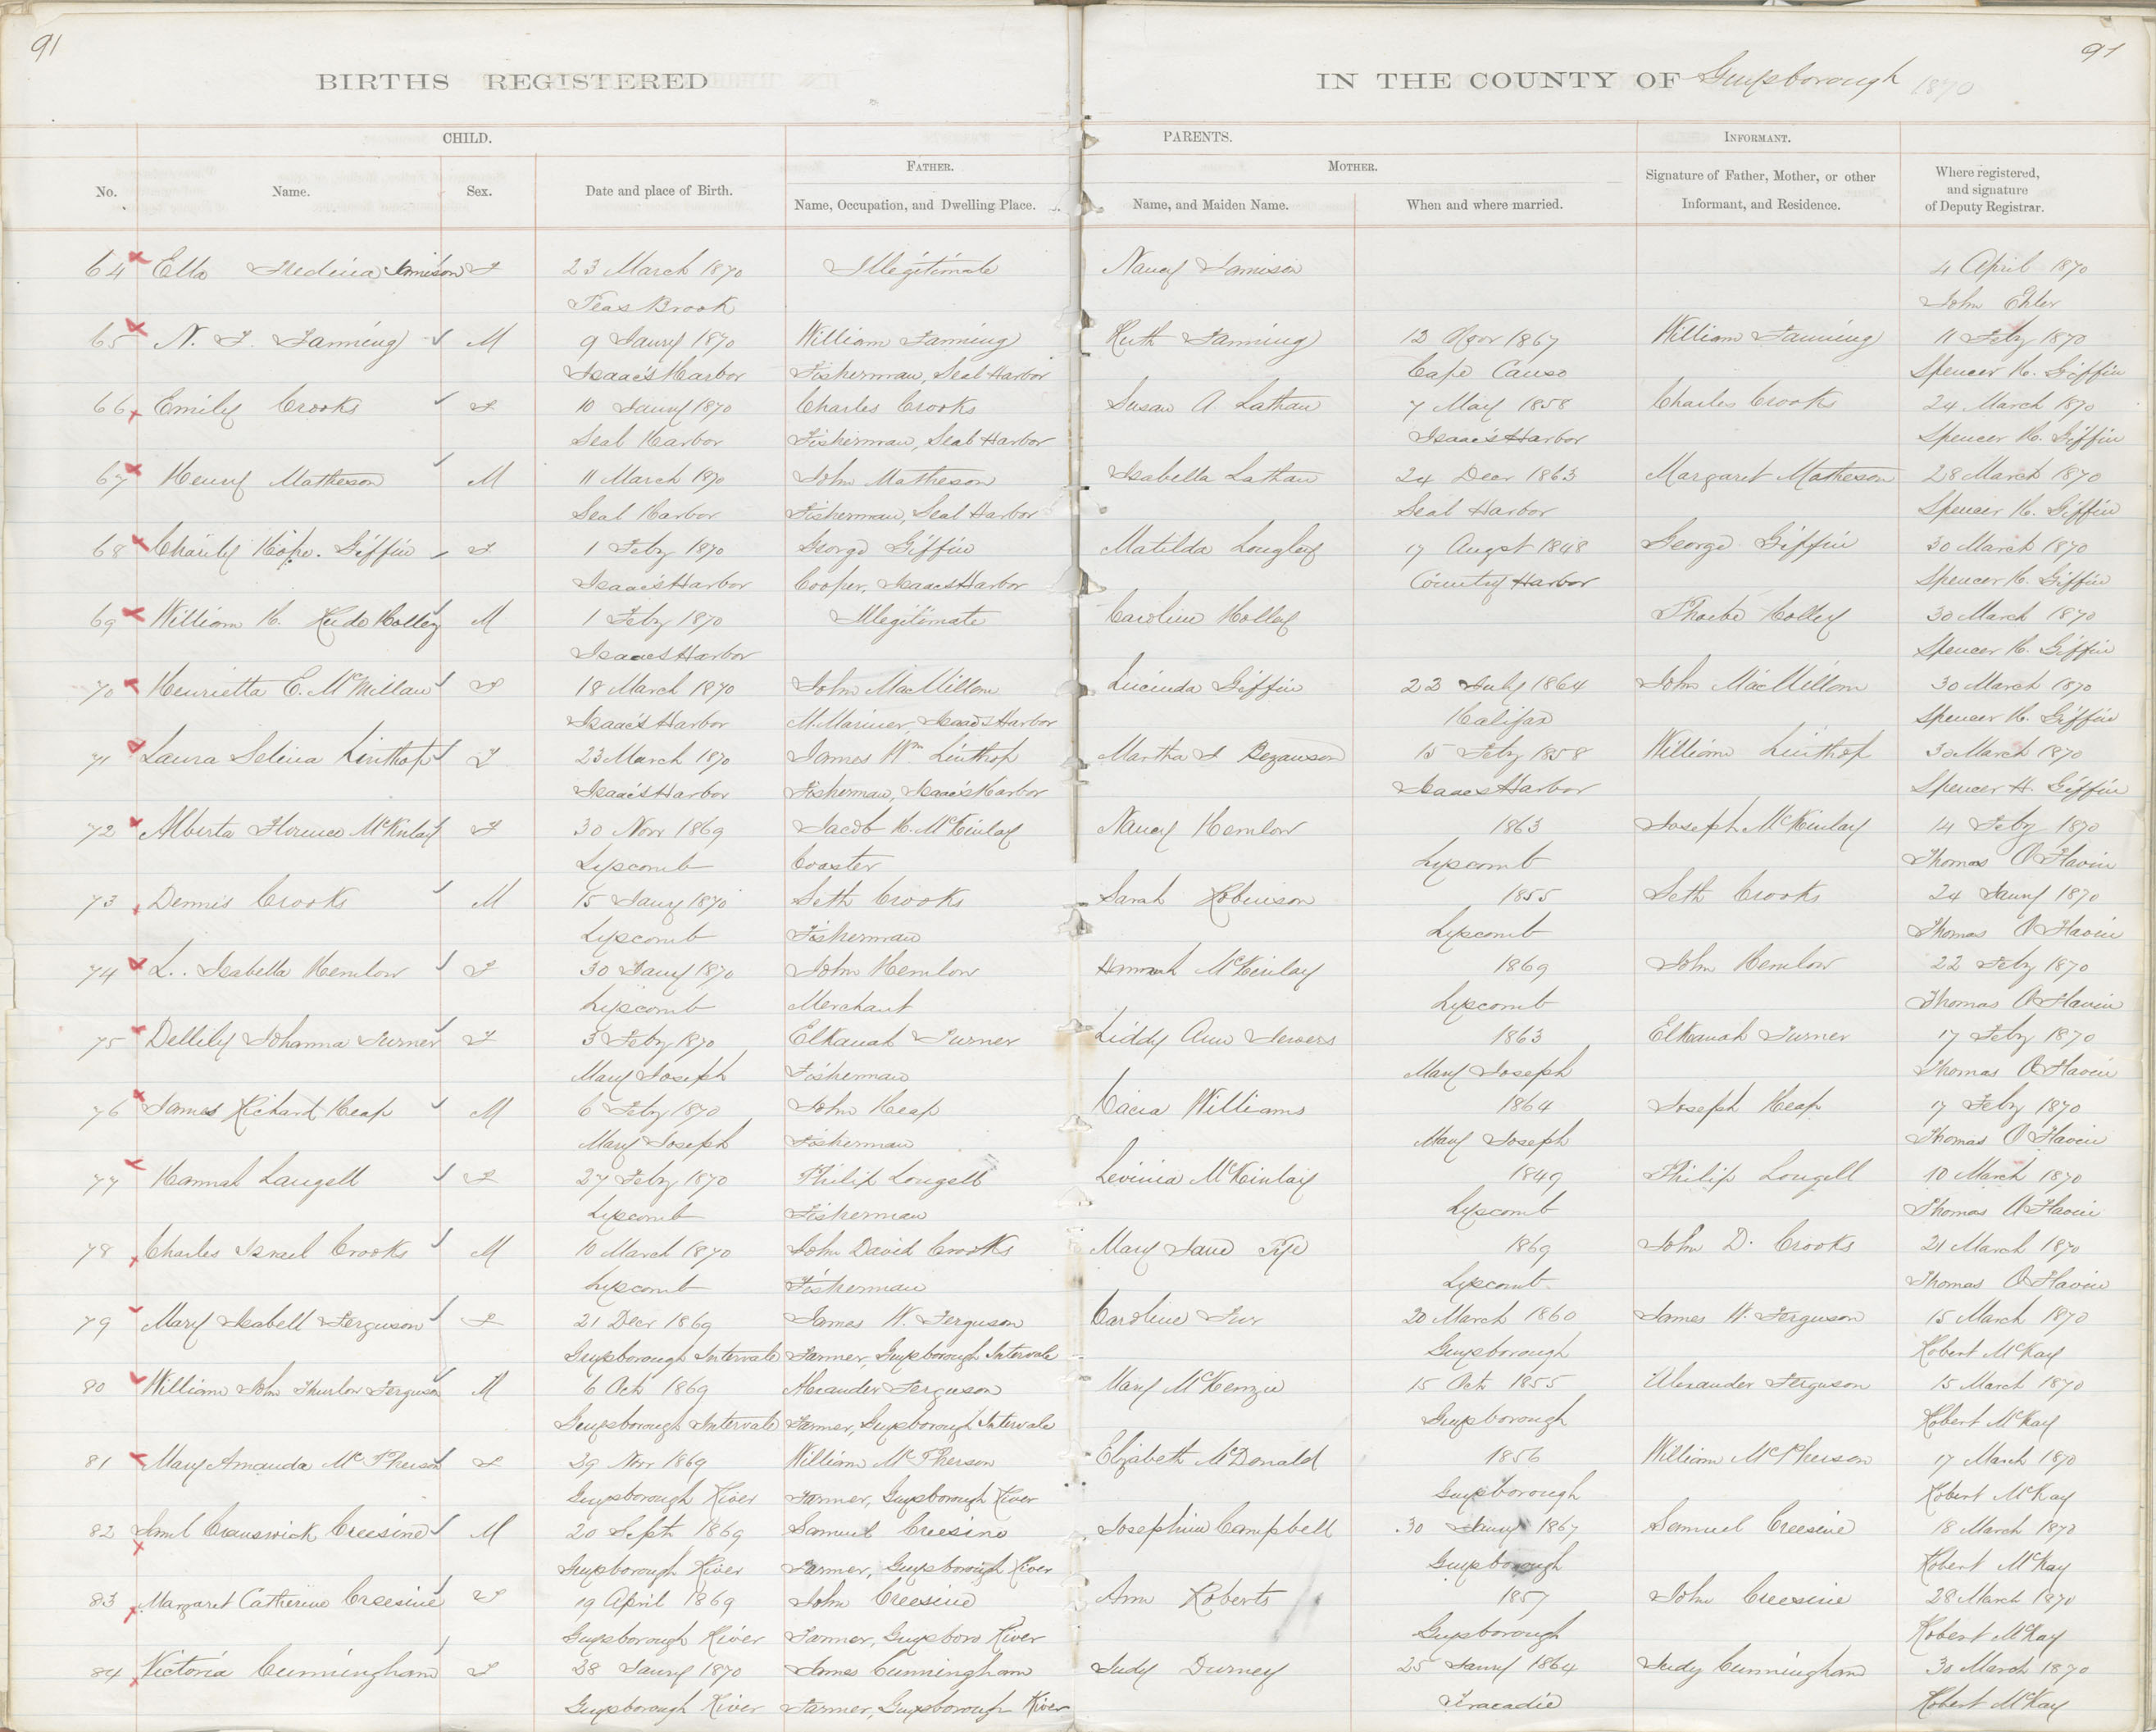 91
91
BIRTHS REGISTERED
IN THE COUNTY OF Guysborough 1870
CHILD.
PARENTS.
INFORMANT.
FATHER.
MOTHER.
No.
Name.
Sex.
Date and place of Birth.
Name, Occupation, and Dwelling Place.
Name, and Maiden Name.
When and where married.
Signature of Father, Mother, or other
Informant, and Residence.
Where registered,
and signature
of Deputy Registrar.
64 Ella Fredina Jamison F 23 March 1870 Illegitimate Nancy Jamison 4 April 1870
Feas Brook John Ehler
65 N. F. Fanning M 9 Jany 1870 William Fanning Ruth Fanning 12 Novr 1867 William Fanning 11 Feby 1870
Isaac's Harbor Fisherman, Seal Harbor Cape Canso Spencer H. Giffin
66 Emily Crooks F 10 Jany 1870 Charles Crooks Susan A Lathan 7 May 1858 Charles Crooks 24 March 1870
Seal Harbor Fisherman, Seal Harbor Isaac's Harbor Spencer H. Giffin
67 Henry Matheson M 11 March 1870 John Matheson Isabella Lathan 24 Decr 1863 Margaret Matheson 28 March 1870
Seal Harbor Fisherman, Seal Harbor Seal Harbor Spencer H. Giffin
68 Charity Hope. Giffin F 1 Feby 1870 George Giffin Matilda Langley 17 Augst 1848 George Giffin 30 March 1870
Isaac's Harbor Cooper, Isaacs Harbor Country Harbor Spencer H. Giffin
69 William H. Holley M 1 Feby 1870 Illegitimate Caroline Holley Phoebe Holley 30 March 1870
Isaacs Harbor Spencer H. Giffin
70 Henrietta E. McMillan F 18 March 1870 John MacMillom Lucinda Giffin 23 July 1864 John MacMillom 30 March 1870
Isaac's Harbor M. Mariner, Isaacs Harbor Halifax Spencer H. Giffin
71 Laura Selina Linthop F 23 March 1870 James Wm Linthop Martha J Bezanson 15 Feby 1858 William Linthop 30 March 1870
Isaac's Harbor Fisherman, Isaac's Harbor Isaacs Harbor Spencer H. Giffin
72 Alberta Florence McKinlay F 30 Novr 1869 Jacob H. McKinlay Nancy Hemlow 1863 Joseph McKinlay 14 Feby 1870
Lipscomb Coaster Lipscomb Thomas O Flavin
73 Dennis Crooks M 15 Jany 1870 Seth Crooks Sarah Robinson 1855 Seth Crooks 24 Jany 1870
Lipscomb Fisherman Lipscomb Thomas O Flavin
74 L.. Isabella Hemlow F 30 Jany 1870 John Hemlow Hannah McKinlay 1869 John Hemlow 22 Feby 1870
Lipscomb Merchant Lipscomb Thomas O Flavin
75 Dellily Johanna Turner F 3 Feby 1870 Elkanah Turner Liddy Ann Jewers 1863 Elkanah Turner 17 Feby 1870
Mary Joseph Fisherman Mary Joseph Thomas O Flavin
76 James Richard Heap M 6 Feby 1870 John Heap Cacia Williams 1864 Joseph Heap 17 Feby 1870
Mary Joseph Fisherman Mary Joseph Thomas O Flavin
77 Hannah Langell F 27 Feby 1870 Philip Longell Levinia McKinlay 1849 Philip Longell 10 March 1870
Lipscomb Fisherman Lipscomb Thomas O Flavin
78 Charles Israel Crooks M 10 March 1870 John David Crooks Mary Jane Pye 1869 John D. Crooks 21 March 1870
Lipscomb Fisherman Lipscomb Thomas O Flavin
79 Mary Isabell Ferguson F 21 Decr 1869 James W. Ferguson Caroline 20 March 1860 James W. Ferguson 15 March 1870
Guysborough Intervale Farmer, Guysborough Intervale Guysborough Robert McKay
80 William John Thurlow Ferguson M 6 Oct 1869 Alexander Ferguson Mary McKenzie 15 Oct 1855 Alexander Ferguson 15 March 1870
Guysborough Intervale Farmer, Guysborough Intervale Guysborough Robert McKay
81 Mary Amanda McPherson F 29 Novr 1869 William McPherson Elizabeth McDonald 1856 William McPherson 17 March 1870
Guysborough River Farmer, Guysborough River Guysborough Robert McKay
82 Saml Cranswick Creesine M 20 Sept 1869 Samuel Creesine Josephine Campbell 30 Jany 1867 Samuel Creesine 18 March 1870
Guysborough River Farmer, Guysborough River Guysborough Robert McKay
83 Margaret Catherine Creesine F 19 April 1869 John Creesine Ann Roberts 1857 John Creesine 28 March 1870
Guysborough River Farmer, Guysboro River Guysborough Robert McKay
84 Victoria Cunningham F 28 Jany 1870 James Cunningham Judy Durney 25 Jany 1864 Judy Cunningham 30 March 1870
Guysborough River Farmer, Guysborough River Tracadie Robert McKay